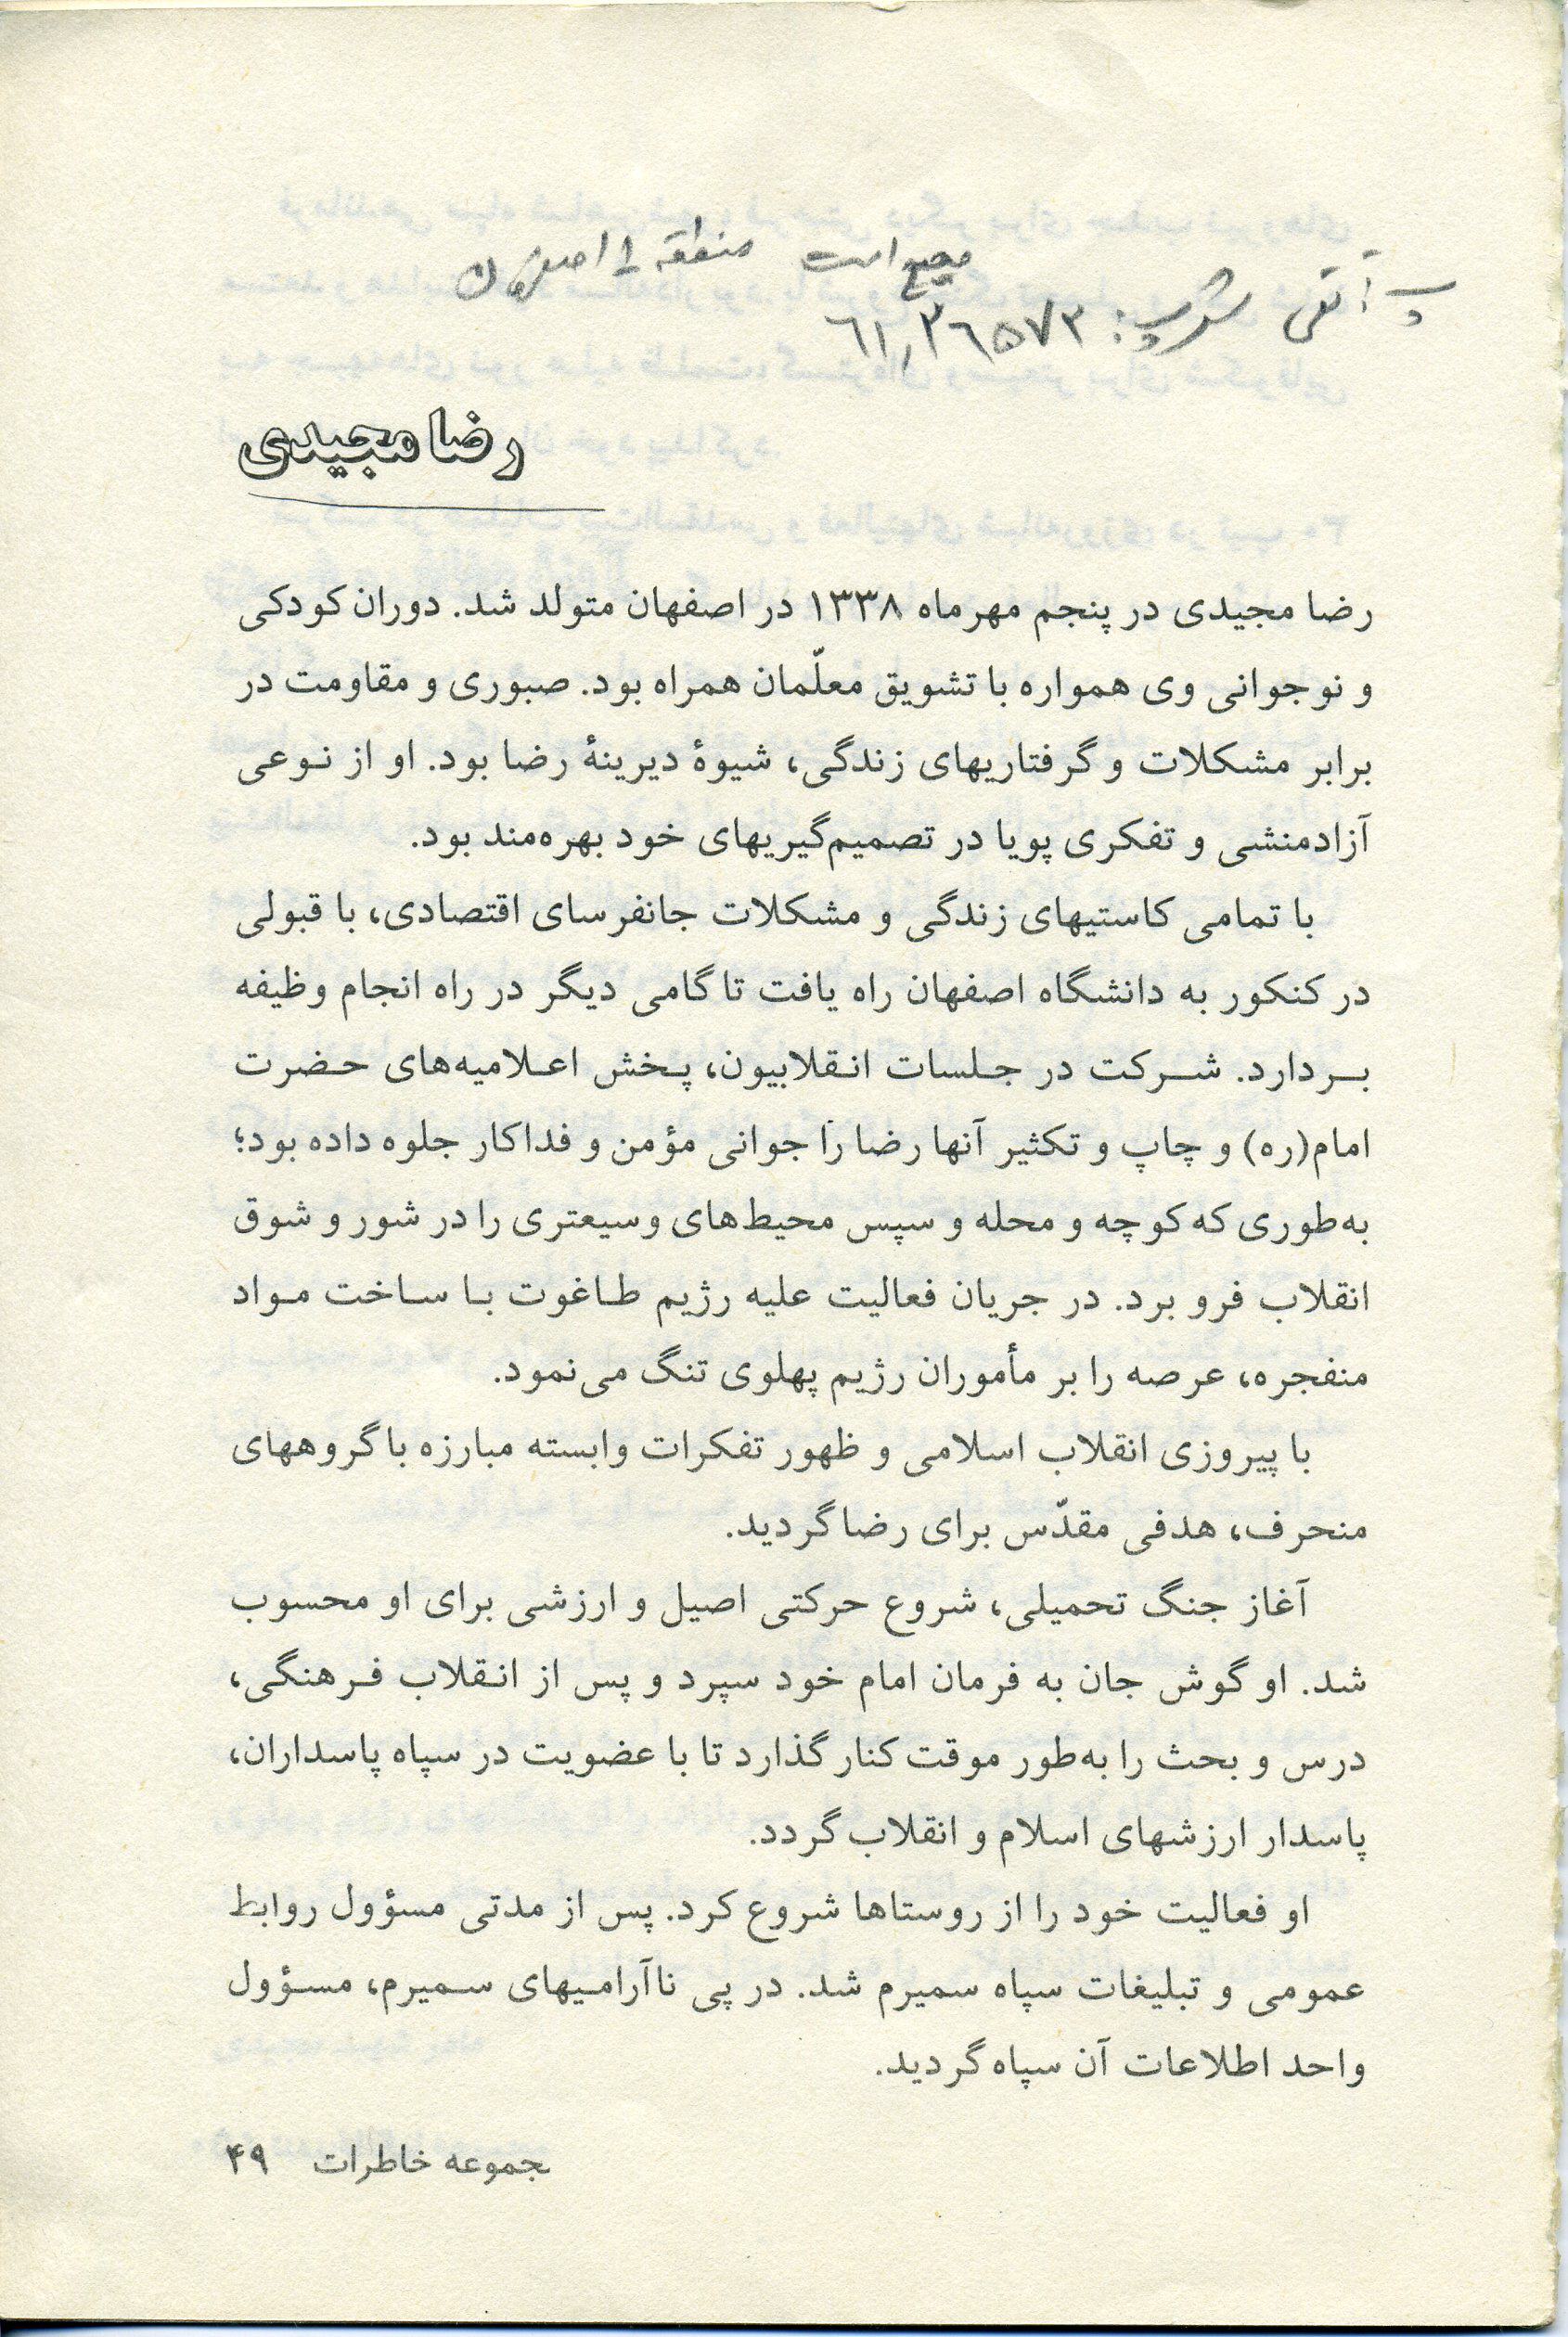 صحیح است منطقه ۱ اصفهان
۶۱,۲۶۵۷۳
رضا مجیدی
رضا مجیدی در پنجم مهرماه ۱۳۳۸ در اصفهان متولد شد. دوران کودکی
و نوجوانی وی همواره با تشویق معلّمان همراه بود. صبوری و مقاومت در
برابر مشکلات و گرفتاریهای زندگی، شیوۀ دیرینۀ رضا بود. او از نوعی
آزادمنشی و تفکری پویا در تصمیم‌گیریهای خود بهره‌مند بود.
با تمامی کاستیهای زندگی و مشکلات جانفرسای اقتصادی، با قبولی
در کنکور به دانشگاه اصفهان راه یافت تا گامی دیگر در راه انجام وظیفه
بردارد. شرکت در جلسات انقلابیون، پخش اعلامیه‌های حضرت
امام(ره) و چاپ و تکثیر آنها رضا را جوانی مؤمن و فداکار جلوه داده بود؛
به‌طوری که کوچه و محله و سپس محیط‌های وسیعتری را در شور و شوق
انقلاب فرو برد. در جریان فعالیت علیه رژیم طاغوت با ساخت مواد
منفجره، عرصه را بر مأموران رژیم پهلوی تنگ می‌نمود.
با پیروزی انقلاب اسلامی و ظهور تفکرات وابسته مبارزه با گروههای
منحرف، هدفی مقدّس برای رضا گردید.
آغاز جنگ تحمیلی، شروع حرکتی اصیل و ارزشی برای او محسوب
شد. او گوش جان به فرمان امام خود سپرد و پس از انقلاب فرهنگی،
درس و بحث را به‌طور موقت کنار گذارد تا با عضویت در سپاه پاسداران،
پاسدار ارزشهای اسلام و انقلاب گردد.
او فعالیت خود را از روستاها شروع کرد. پس از مدتی مسؤول روابط
عمومی و تبلیغات سپاه سمیرم شد. در پی ناآرامیهای سمیرم، مسؤول
واحد اطلاعات آن سپاه گردید.
مجموعه خاطرات ۴۹